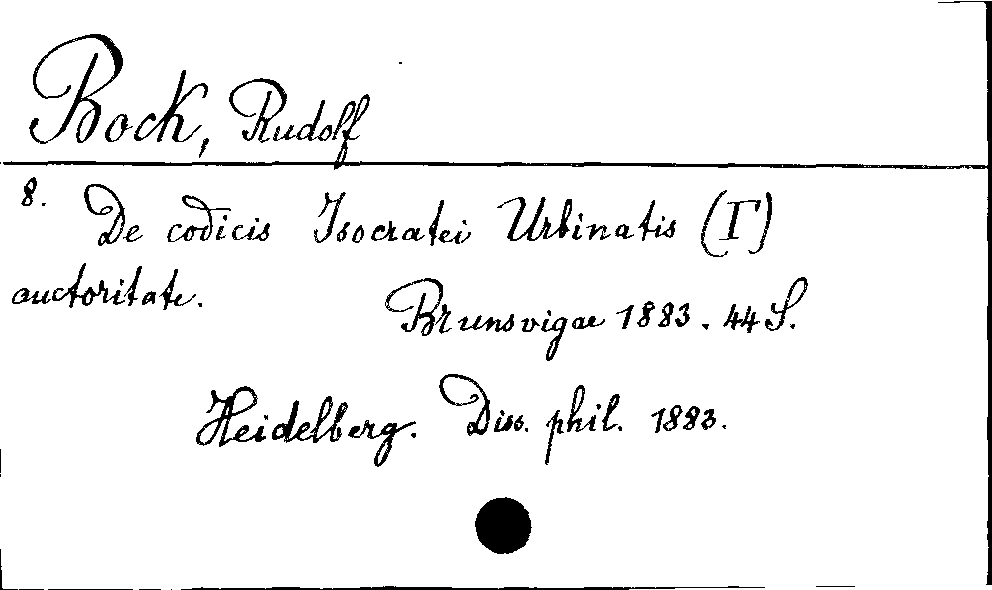 Bock, Rudolf
8. De codicis Isocratei Urbinatis (Γ)
auctoritate.
Brunsvigae 1883. 44 S.
Heidelberg. Diss. phil. 1883.